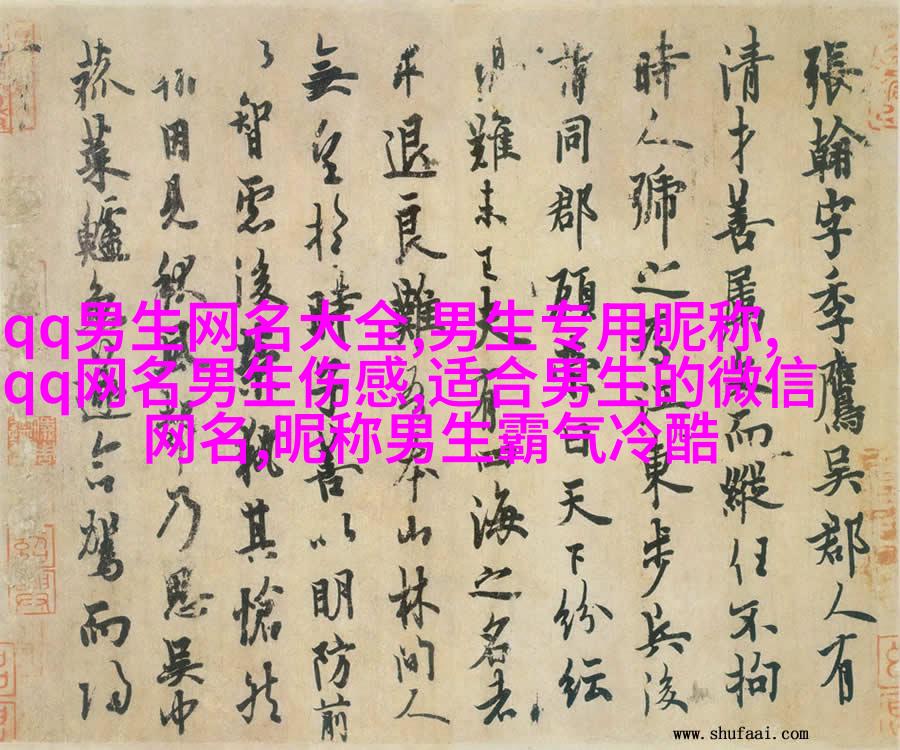 張翰字季鷹吳郡人有
清才善屬文而縱任不拘
時人號之為江東步兵後
謂同郡顧榮曰天下紛紜
難未已夫有四海之名者
求退良難吾本山林間人
無望於時子善以明防前
智慮後榮執其愴然
翰因見秋風起乃思吳中
菰菜鱸魚遂命駕而歸
qq男生网名大全,男生专用昵称,
qq网名男生伤感,适合男生的微信
网名,昵称男生霸气冷酷
www.shufaai.com